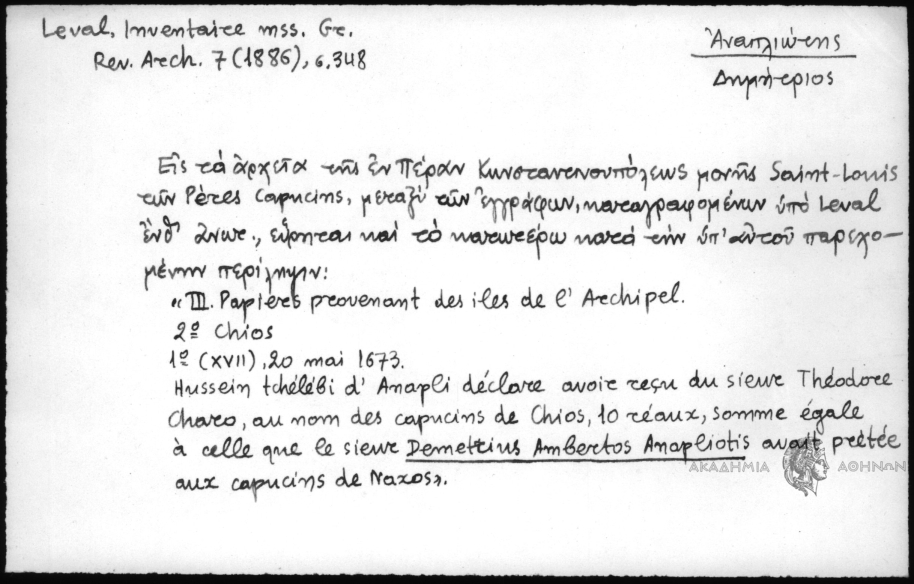 Leval, Inventaire mss. Gr.
Rev. Arch. 7 (1886), σ. 348
Ἀναπλιώτης
Δημήτριος
Εἰς τὰ ἀρχεῖα τῆς ἐν Πέραν Κωνσταντινουπόλεως μονῆς Saint-Louis
τῶν Pères Capucins, μεταξὺ τῶν ἐγγράφων, καταγραφομένων ὑπὸ Leval
ἔνθ' ἀνωτ., εὕρηται καὶ τὸ κατωτέρω κατὰ τὴν ὑπ' αὐτοῦ παρεχο-
μένην περίληψιν:
« III. Papières provenant des iles de l' Archipel.
2º Chios
1º (XVII), 20 mai 1673.
Hussein tchélébi d' Anapli déclare avoir reçu du sieur Théodore
Charo, au nom des capucins de Chios, 10 réaux, somme égale
à celle que le sieur Demettius Ambertos Anapliotis avait prètée
aux capucins de Naxos».
ΑΚΑΔΗΜΙΑ ΑΘΗΝΩΝ